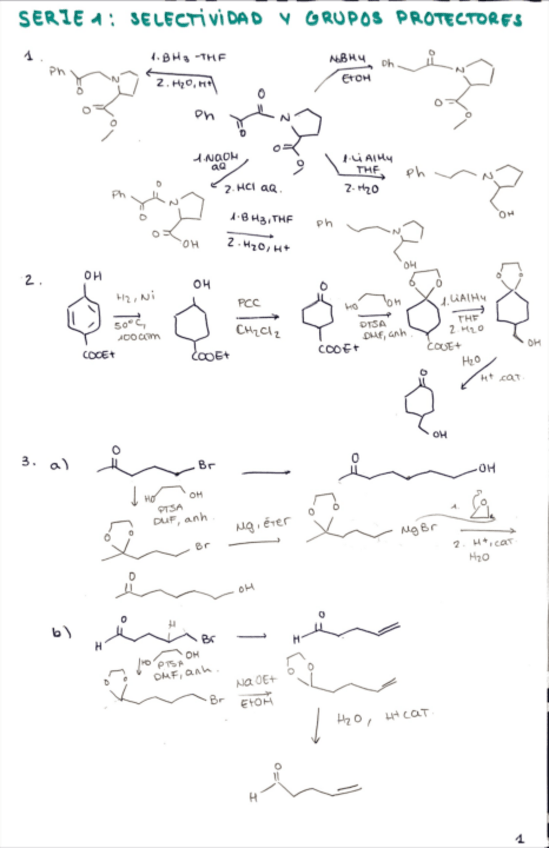 SERIE 1: SELECTIVIDAD Y GRUPOS PROTECTORES
1.
Ph
N
O
O
O
1. BH3-THF
2. H2O, H+
NaBH4
EtOH
Ph
O
N
O
O
Ph
O
O
N
O
O
1. NaOH aq
2. HCl aq.
1. LiAlH4
THF
2. H2O
Ph
N
OH
Ph
O
O
N
O
OH
1. BH3, THF
2. H2O, H+
Ph
N
OH
2.
OH
COOEt
H2, Ni
50°C,
100atm
OH
COOEt
PCC
CH2Cl2
O
COOEt
HO OH
PTSA
DMF, anh.
O O
COOEt
1. LiAlH4
THF
2. H2O
O O
OH
H2O
H+ cat.
O
OH
3. a)
O
Br
O
OH
HO OH
PTSA
DMF, anh.
O
O
Br
Mg, éter
O
O
MgBr
1. O
2. H+, cat.
H2O
O
OH
b)
H
O
H
Br
H
O
HO OH
PTSA
DMF, anh.
O
O
Br
NaOEt
EtOH
O
O
H2O, H+ cat.
O
H
1